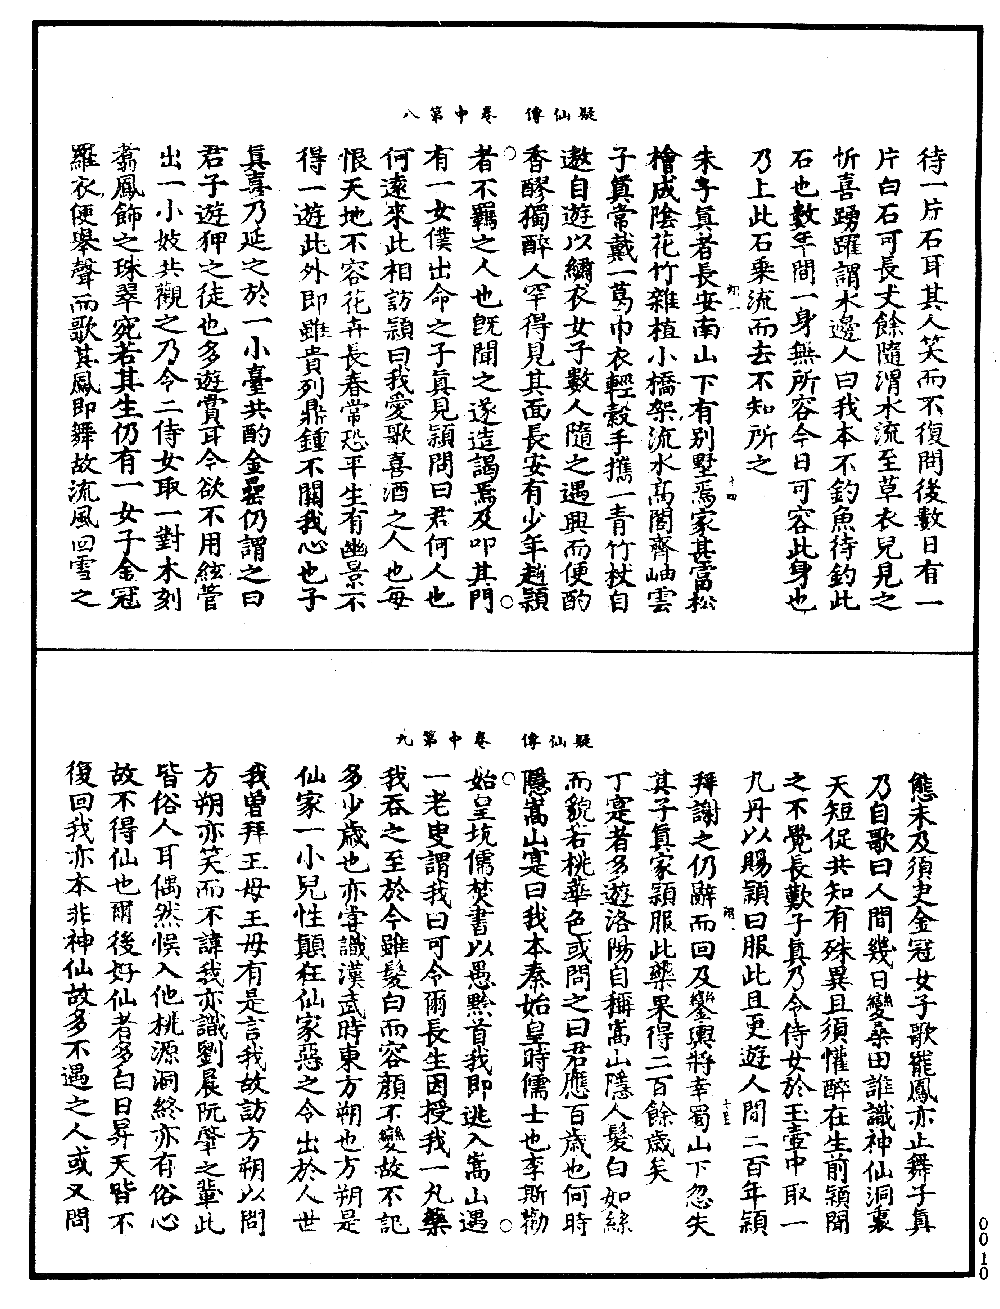 疑仙傳　卷中第八
待一片石耳其人笑而不復問後數日有一
片白石可長丈餘隨渭水流至草衣兒見之
忻喜踴躍謂水邊人曰我本不釣魚待釣此
石也數年間一身無所容今日可容此身也
乃上此石乘流而去不知所之
朱子真者長安南山下有別墅焉家甚富松
檜成陰花竹雜植小橋架流水高閣齊岫雲
子真常戴一葛巾衣輕縠手攜一青竹杖自
遨自遊以繡衣女子數人隨之遇興而便酌
香醪獨醉人罕得見其面長安有少年趙穎
者不羈之人也旣聞之遂造謁焉及叩其門
有一女僕出命之子真見穎問曰君何人也
何遠來此相訪穎曰我愛歌喜酒之人也每
恨天地不容花卉長春常恐平生有幽景不
得一遊此外即雖貴列鼎鍾不關我心也子
真喜乃延之於一小臺共酌金罍仍謂之曰
君子遊狎之徒也多遊賞耳今欲不用絃管
出一小妓共觀之乃令二侍女取一對木刻
鸞鳳飾之珠翠宛若其生仍有一女子金冠
羅衣便舉聲而歌其鳳即舞故流風回雪之
疑仙傳　卷中第九
態未及須臾金冠女子歌罷鳳亦止舞子真
乃自歌曰人間幾日變桑田誰識神仙洞裏
天短促共知有殊異且須懽醉在生前穎聞
之不覺長歎子真乃令侍女於玉壺中取一
九丹以賜穎曰服此且更遊人間二百年穎
拜謝之仍辭而回及鑾輿將幸蜀山下忽失
其子真家穎服此藥果得二百餘歲矣
丁寔者多遊洛陽自稱嵩山隱人髮白如絲
而貌若桃華色或問之曰君應百歲也何時
隱嵩山寔曰我本秦始皇時儒士也李斯勸
始皇坑儒焚書以愚黔首我即逃入嵩山遇
一老叟謂我曰可令爾長生因授我一丸藥
我吞之至於今雖髮白而容顏不變故不記
多少歲也亦嘗識漢武時東方朔也方朔是
仙家一小兒性顛狂仙家惡之令出於人世
我曾拜王母王母有是言我故訪方朔以問
方朔亦笑而不諱我亦識劉晨阮肇之輩此
皆俗人耳偶然悞入他桃源洞終亦有俗心
故不得仙也爾後好仙者多白日昇天皆不
復回我亦本非神仙故多不遇之人或又問
0010